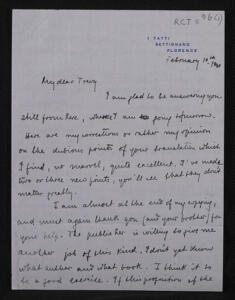 RCT 5
I TATTI
SETTIGNANO
FLORENCE
February 10th
My dear Trevy
I am glad to be answering you
still from here, I am going tomorrow.
Here are my corrections or rather my opinion
on the dubious points of your translation which
I find, no marvel, quite excellent. I've made
two or three new points, you'll see that they don't
matter greatly.
I am almost at the end of my copying,
and must again thank you (and your brother) for
your help. The publisher is willing to give me
another job of this kind. I don't yet know
what author and what book. I think it to
be a good exercise. If this proposition of the